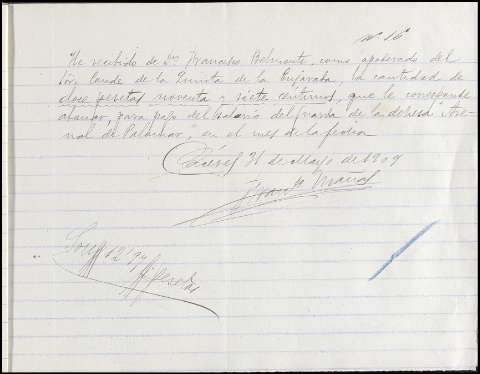 Nº 16
He recibido de Dn Francisco Belmonte, como apoderado del
Sor. Conde de la Quinta de la Enjarada, la cantidad de
doce pesetas noventa y siete centimos, que le corresponde
abonar, para pago del salario del guarda de la dehesa "Are-
nal de Palomar", en el mes de la fecha
Cáceres 31 de Mayo de 1909
Son 12'97 pesetas